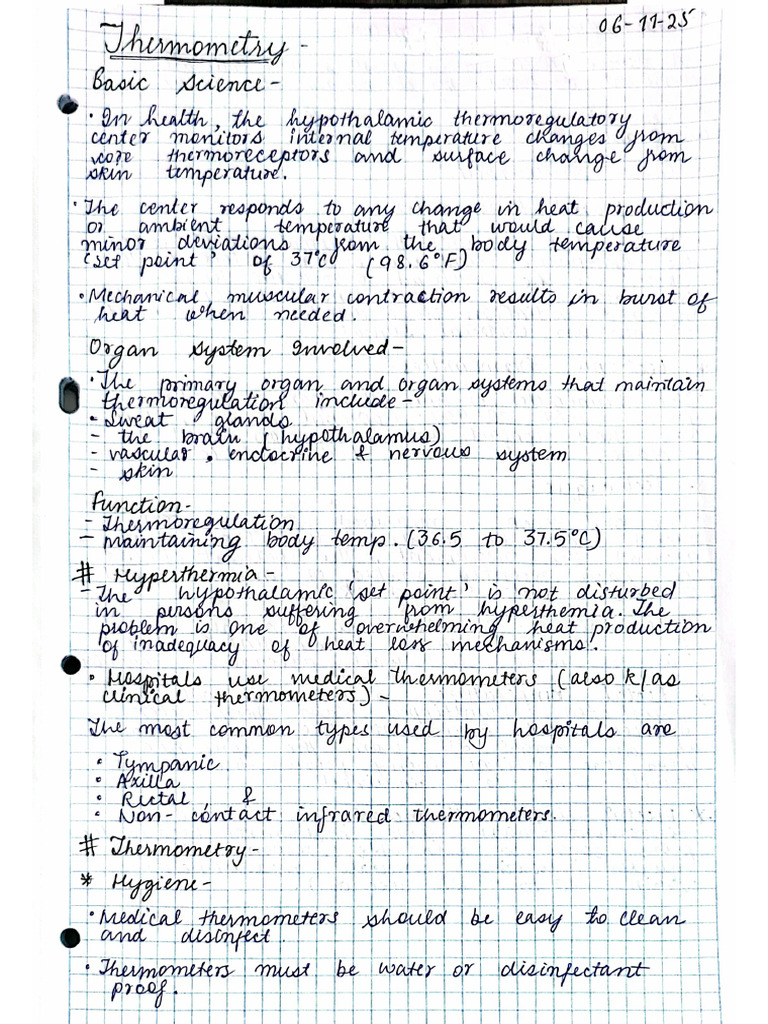 06-11-25
Thermometry -
Basic science -
• In health, the hypothalamic thermoregulatory
center monitors internal temperature changes from
core thermoreceptors and surface change from
skin temperature.
• The center responds to any change in heat production
or ambient temperature that would cause
minor deviations from the body temperature
'set point' of 37°C (98.6°F)
• Mechanical, muscular contraction results in burst of
heat when needed.
Organ system Involved -
• The primary organ and organ systems that maintain
thermoregulation include -
- Sweat glands
- the brain (hypothalamus)
- vascular, endocrine & nervous system
- skin
Function -
- Thermoregulation
- maintaining body temp. (36.5 to 37.5°C)
# Hyperthermia -
- The hypothalamic 'set point' is not disturbed
in persons suffering from hyperthemia. The
problem is one of overwhelming heat production
of inadequacy of heat loss mechanisms.
• Hospitals use medical thermometers (also k/as
clinical thermometers) -
The most common types used by hospitals are
• Tympanic
• Axilla
• Rectal &
• Non-contact infrared thermometers.
# Thermometry -
* Hygiene -
• Medical thermometers should be easy to clean
and disinfect.
• Thermometers must be water or disinfectant
proof.